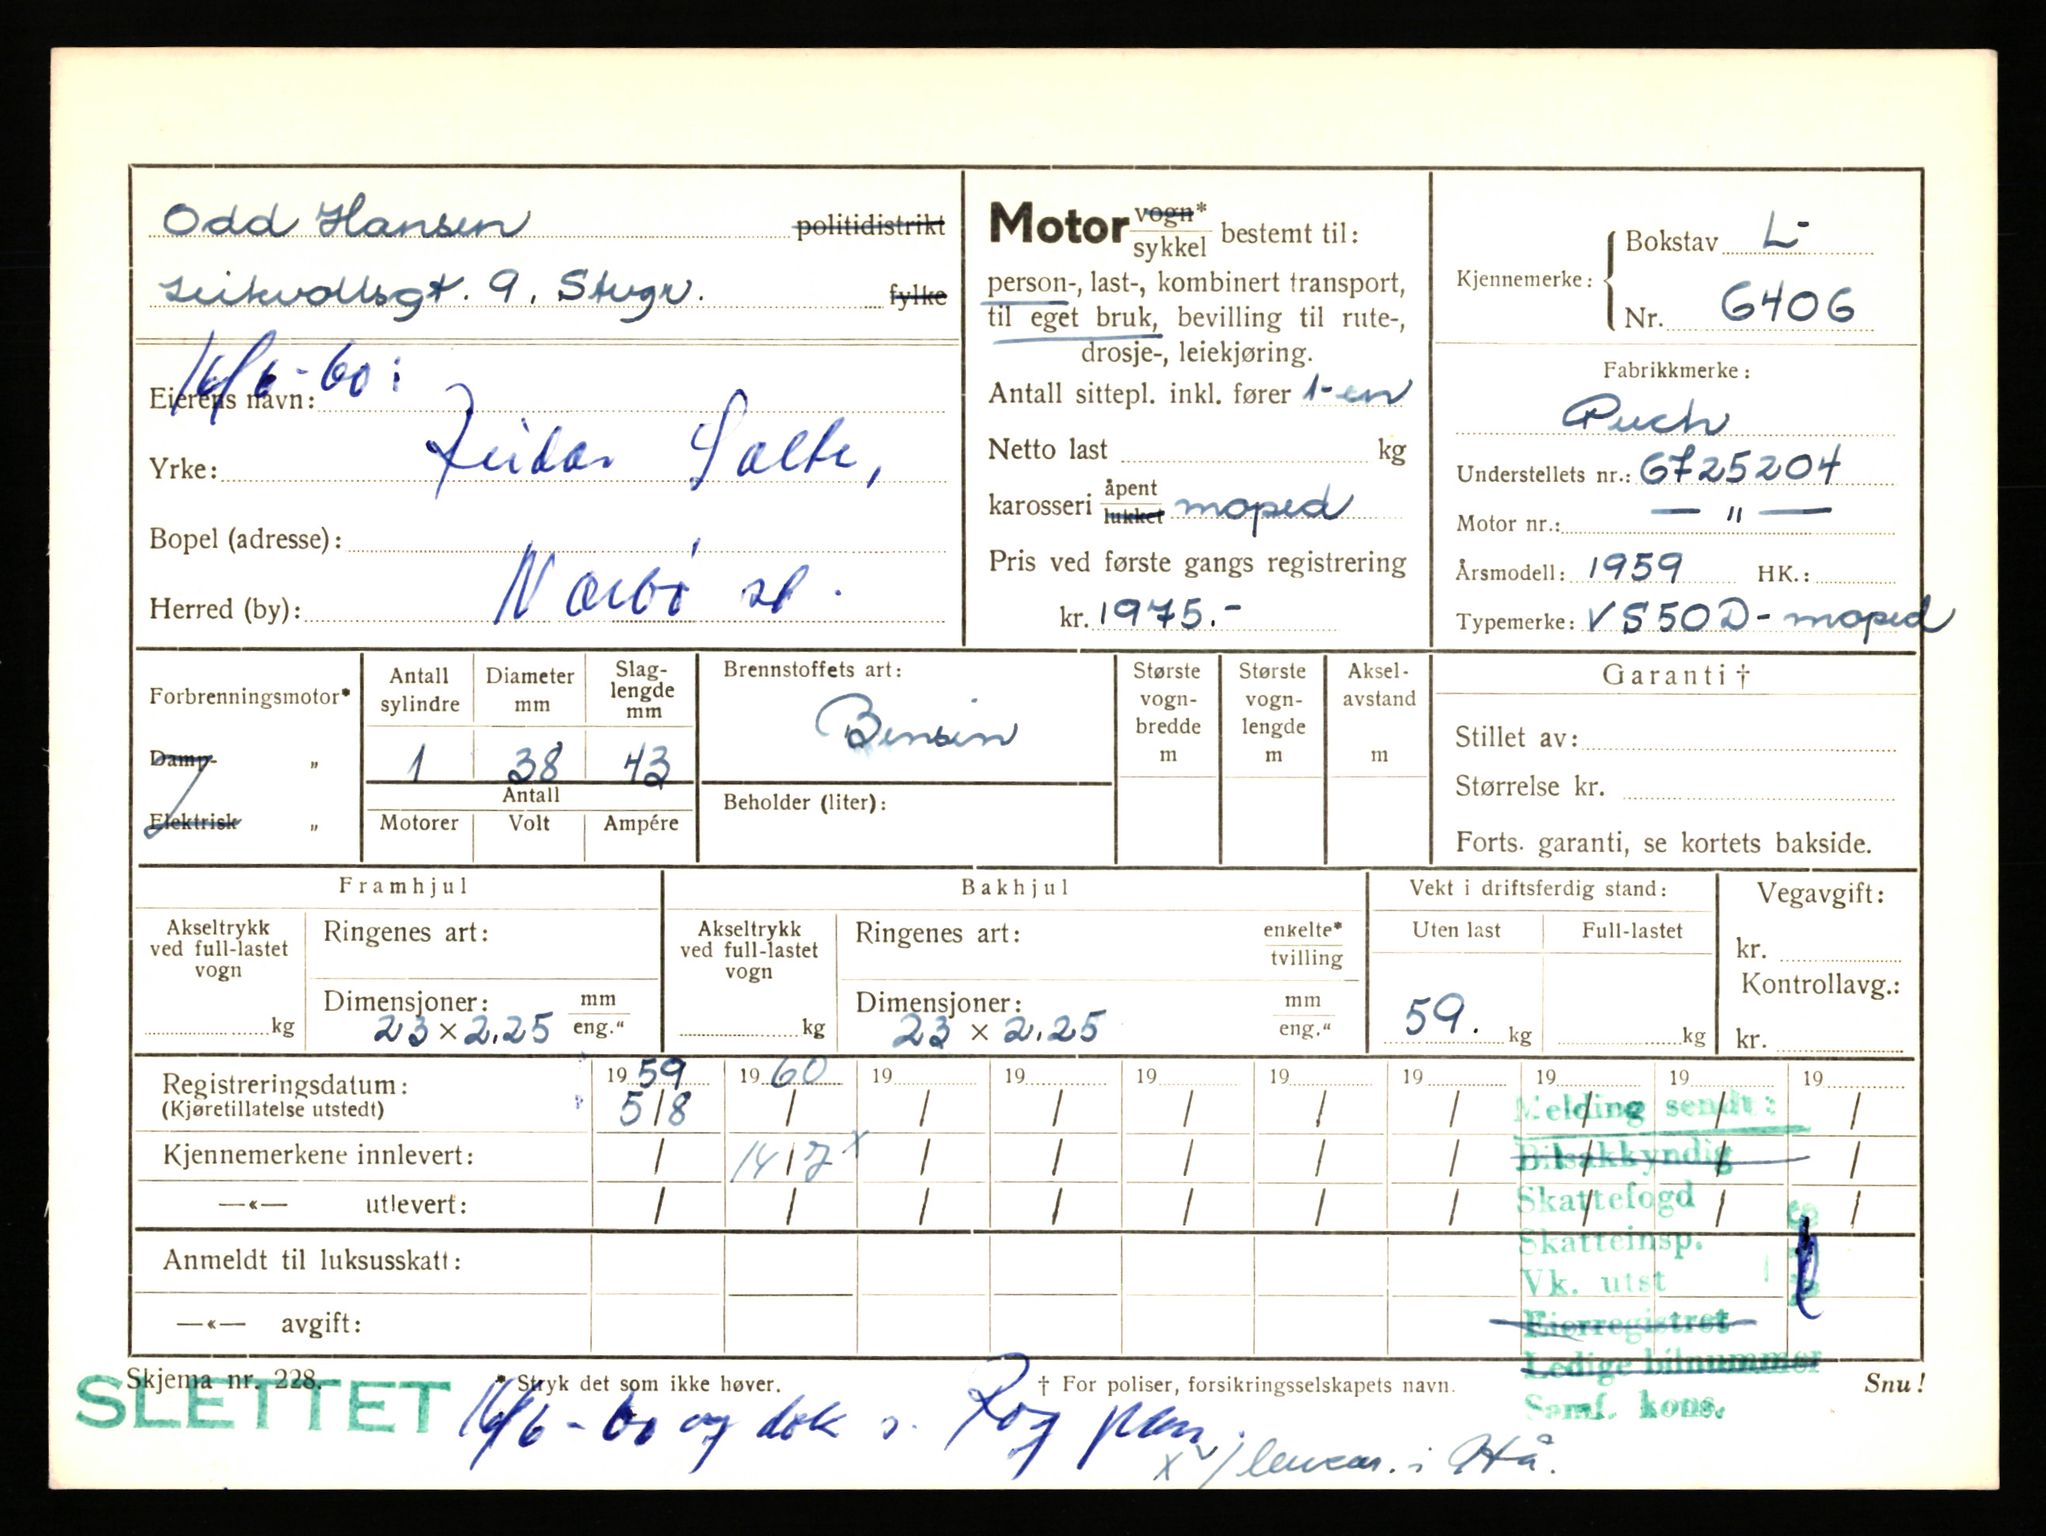 Odd Hansen politidistrikt
Leikvollsgt. 9. Stvgr. fylke
16/6-60:
Eierens navn:
Yrke: Reidar Salte,
Bopel (adresse):
Herred (by): Nærbø st.
Motor vogn* sykkel bestemt til:
person-, last-, kombinert transport,
til eget bruk, bevilling til rute-,
drosje-, leiekjøring.
Antall sittepl. inkl. fører 1-en
Netto last kg
karosseri åpent lukket moped
Pris ved første gangs registrering
kr. 1975.-
Kjennemerke: Bokstav L-
Nr. 6406
Fabrikkmerke:
Puch
Understellets nr.: 6725204
Motor nr.: — " —
Årsmodell: 1959 HK.:
Typemerke: VS50D-moped
Forbrenningsmotor*
Damp- „
Elektrisk „
Antall sylindre
Diameter mm
Slag-lengde mm
1 38 43
Antall
Motorer Volt Ampére
Brennstoffets art:
Bensin
Beholder (liter):
Største vogn-bredde m
Største vogn-lengde m
Aksel-avstand m
Garanti †
Stillet av:
Størrelse kr.
Forts. garanti, se kortets bakside.
Framhjul
Akseltrykk ved full-lastet vogn
kg
Ringenes art:
Dimensjoner: mm eng."
23 x 2.25
Bakhjul
Akseltrykk ved full-lastet vogn
kg
Ringenes art: enkelte* tvilling
Dimensjoner: mm eng."
23 x 2.25
Vekt i driftsferdig stand:
Uten last Full-lastet
59. kg kg
Vegavgift:
kr.
Kontrollavg.:
kr.
Registreringsdatum: 19 59 19 60 19 19 19 19 19 19 19 19
(Kjøretillatelse utstedt) 5/8 / / / / / / / / /
Kjennemerkene innlevert: / 14/7 x / / / / / / / /
—«— utlevert: / / / / / / / / / /
Anmeldt til luksusskatt:
—«— avgift:
Melding sendt:
Bilsakkyndig
Skattefogd
Skatteinsp.
Vk. utst
Eierregistret
Ledige bilnummer
Samf. kons.
Skjema nr. 228.
* Stryk det som ikke høver.
† For poliser, forsikringsselskapets navn.
Snu!
SLETTET
16/6-60 og dok s. Rog
x i Hå.